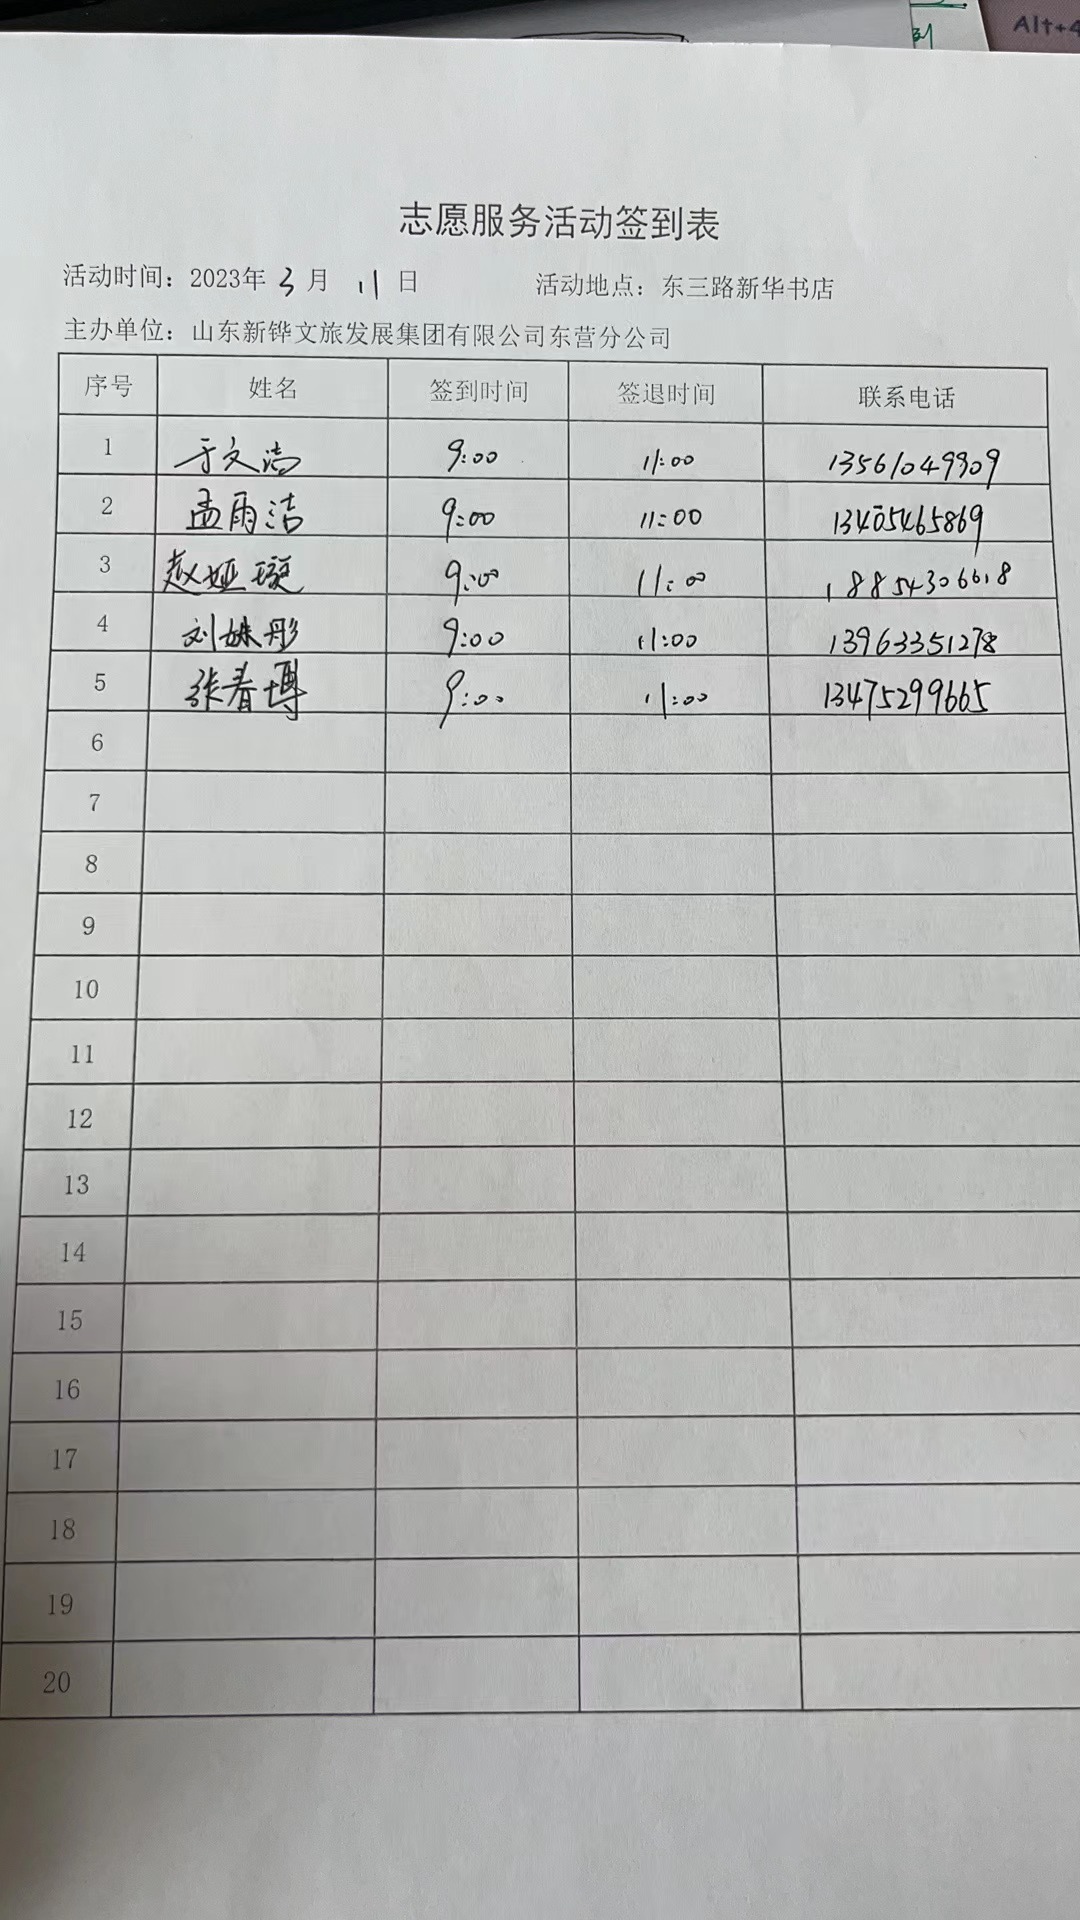 Alt+4
志愿服务活动签到表
活动时间：2023年 3月 11日 活动地点：东三路新华书店
主办单位：山东新铧文旅发展集团有限公司东营分公司
序号 姓名 签到时间 签退时间 联系电话
1 于文洁 9:00 11:00 13561049909
2 孟雨洁 9:00 11:00 13405465869
3 赵娅璇 9:00 11:00 18854306618
4 刘姝彤 9:00 11:00 13963351278
5 张春博 9:00 11:00 13475299665
6
7
8
9
10
11
12
13
14
15
16
17
18
19
20